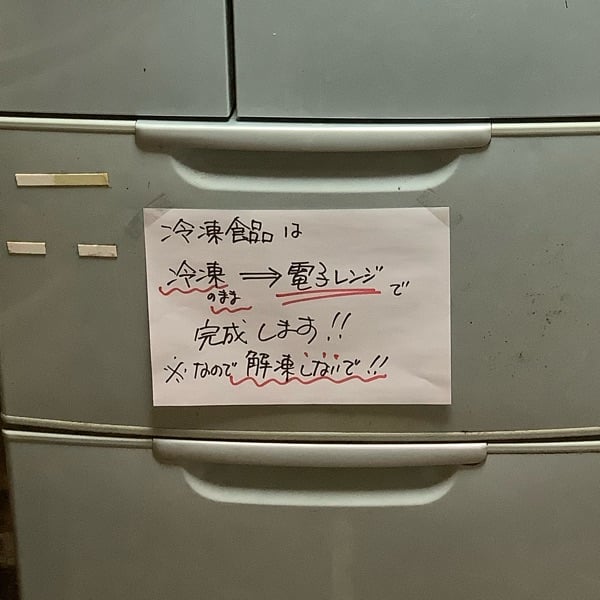 冷凍食品は
冷凍のまま⇒電子レンジで
完成します!!
※なので解凍しないで!!